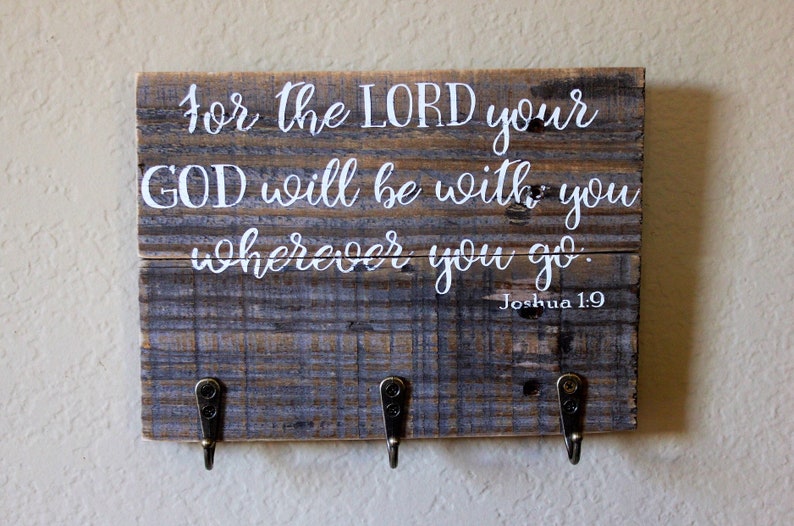 For the LORD your
GOD will be with you
wherever you go.
Joshua 1:9